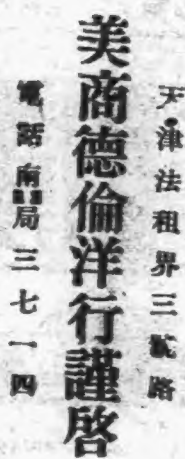 天津法租界三號路
美商德倫洋行謹啓
電話南局三七一四